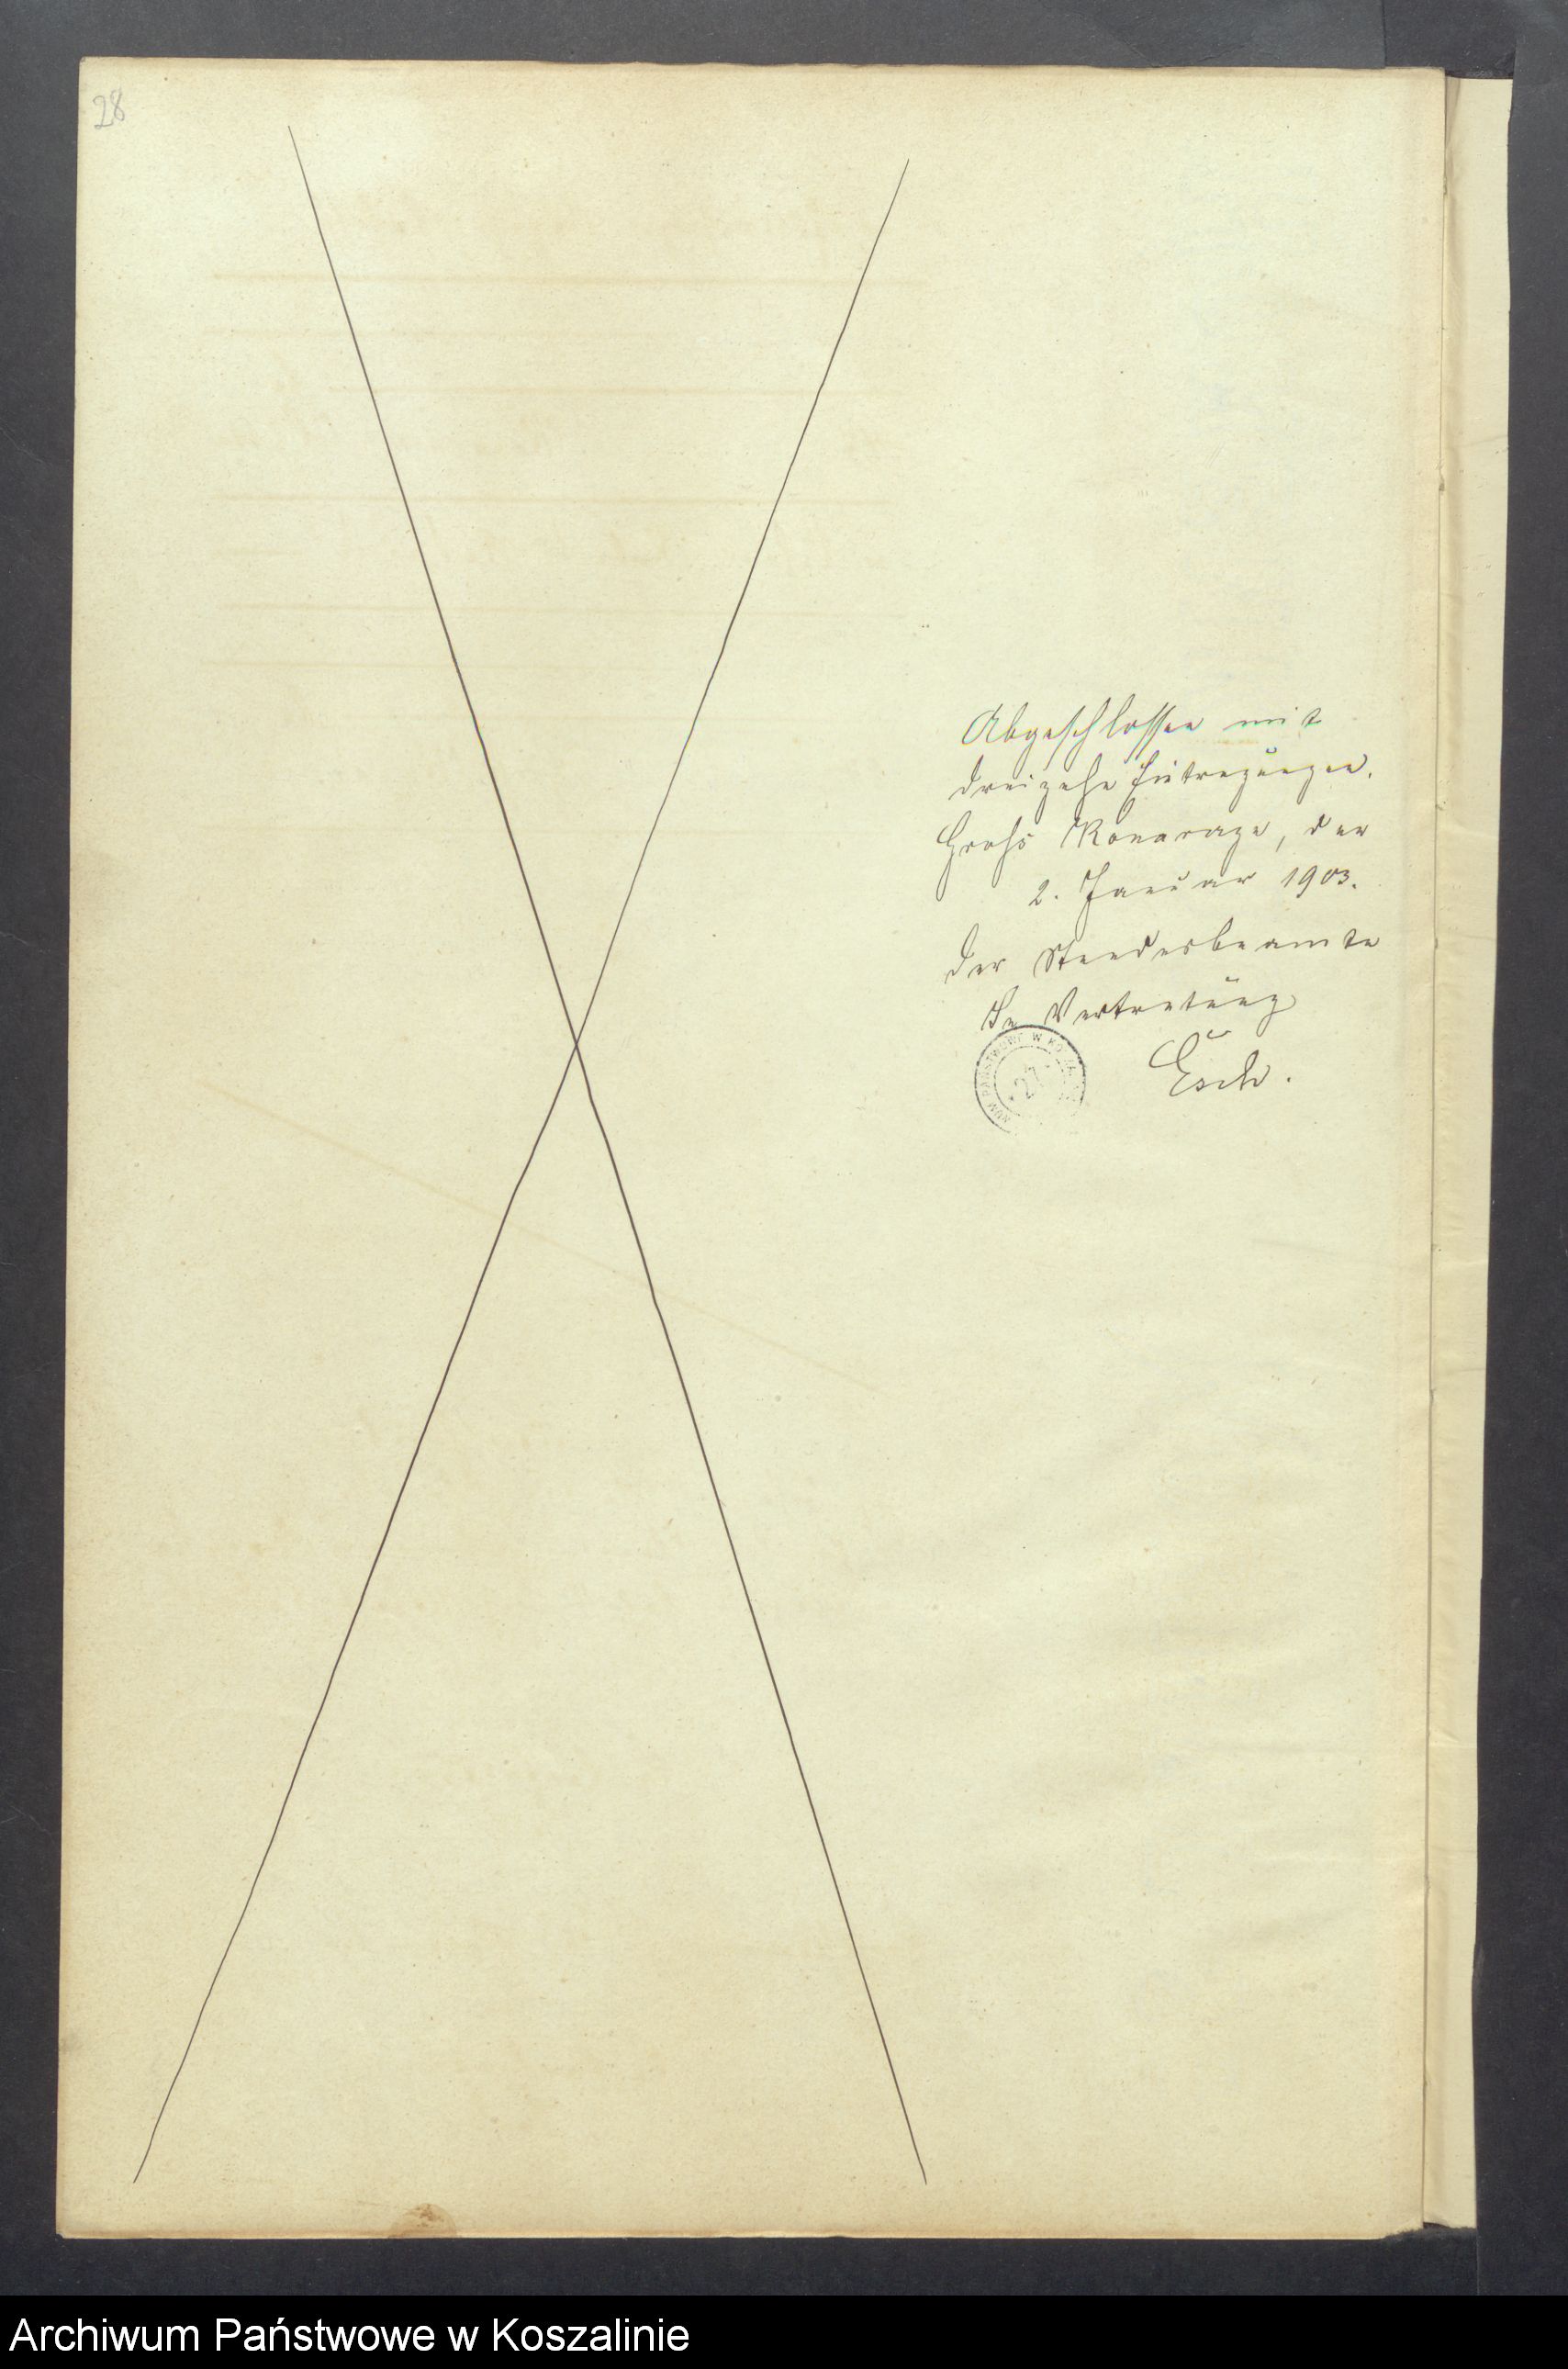 28
Abgeschlossen mit
dreizehn Eintragungen.
Gross Konarczyn, den
2. Januar 1903.
Der Standesbeamte
In Vertretung
Esch.
27
Archiwum Państwowe w Koszalinie